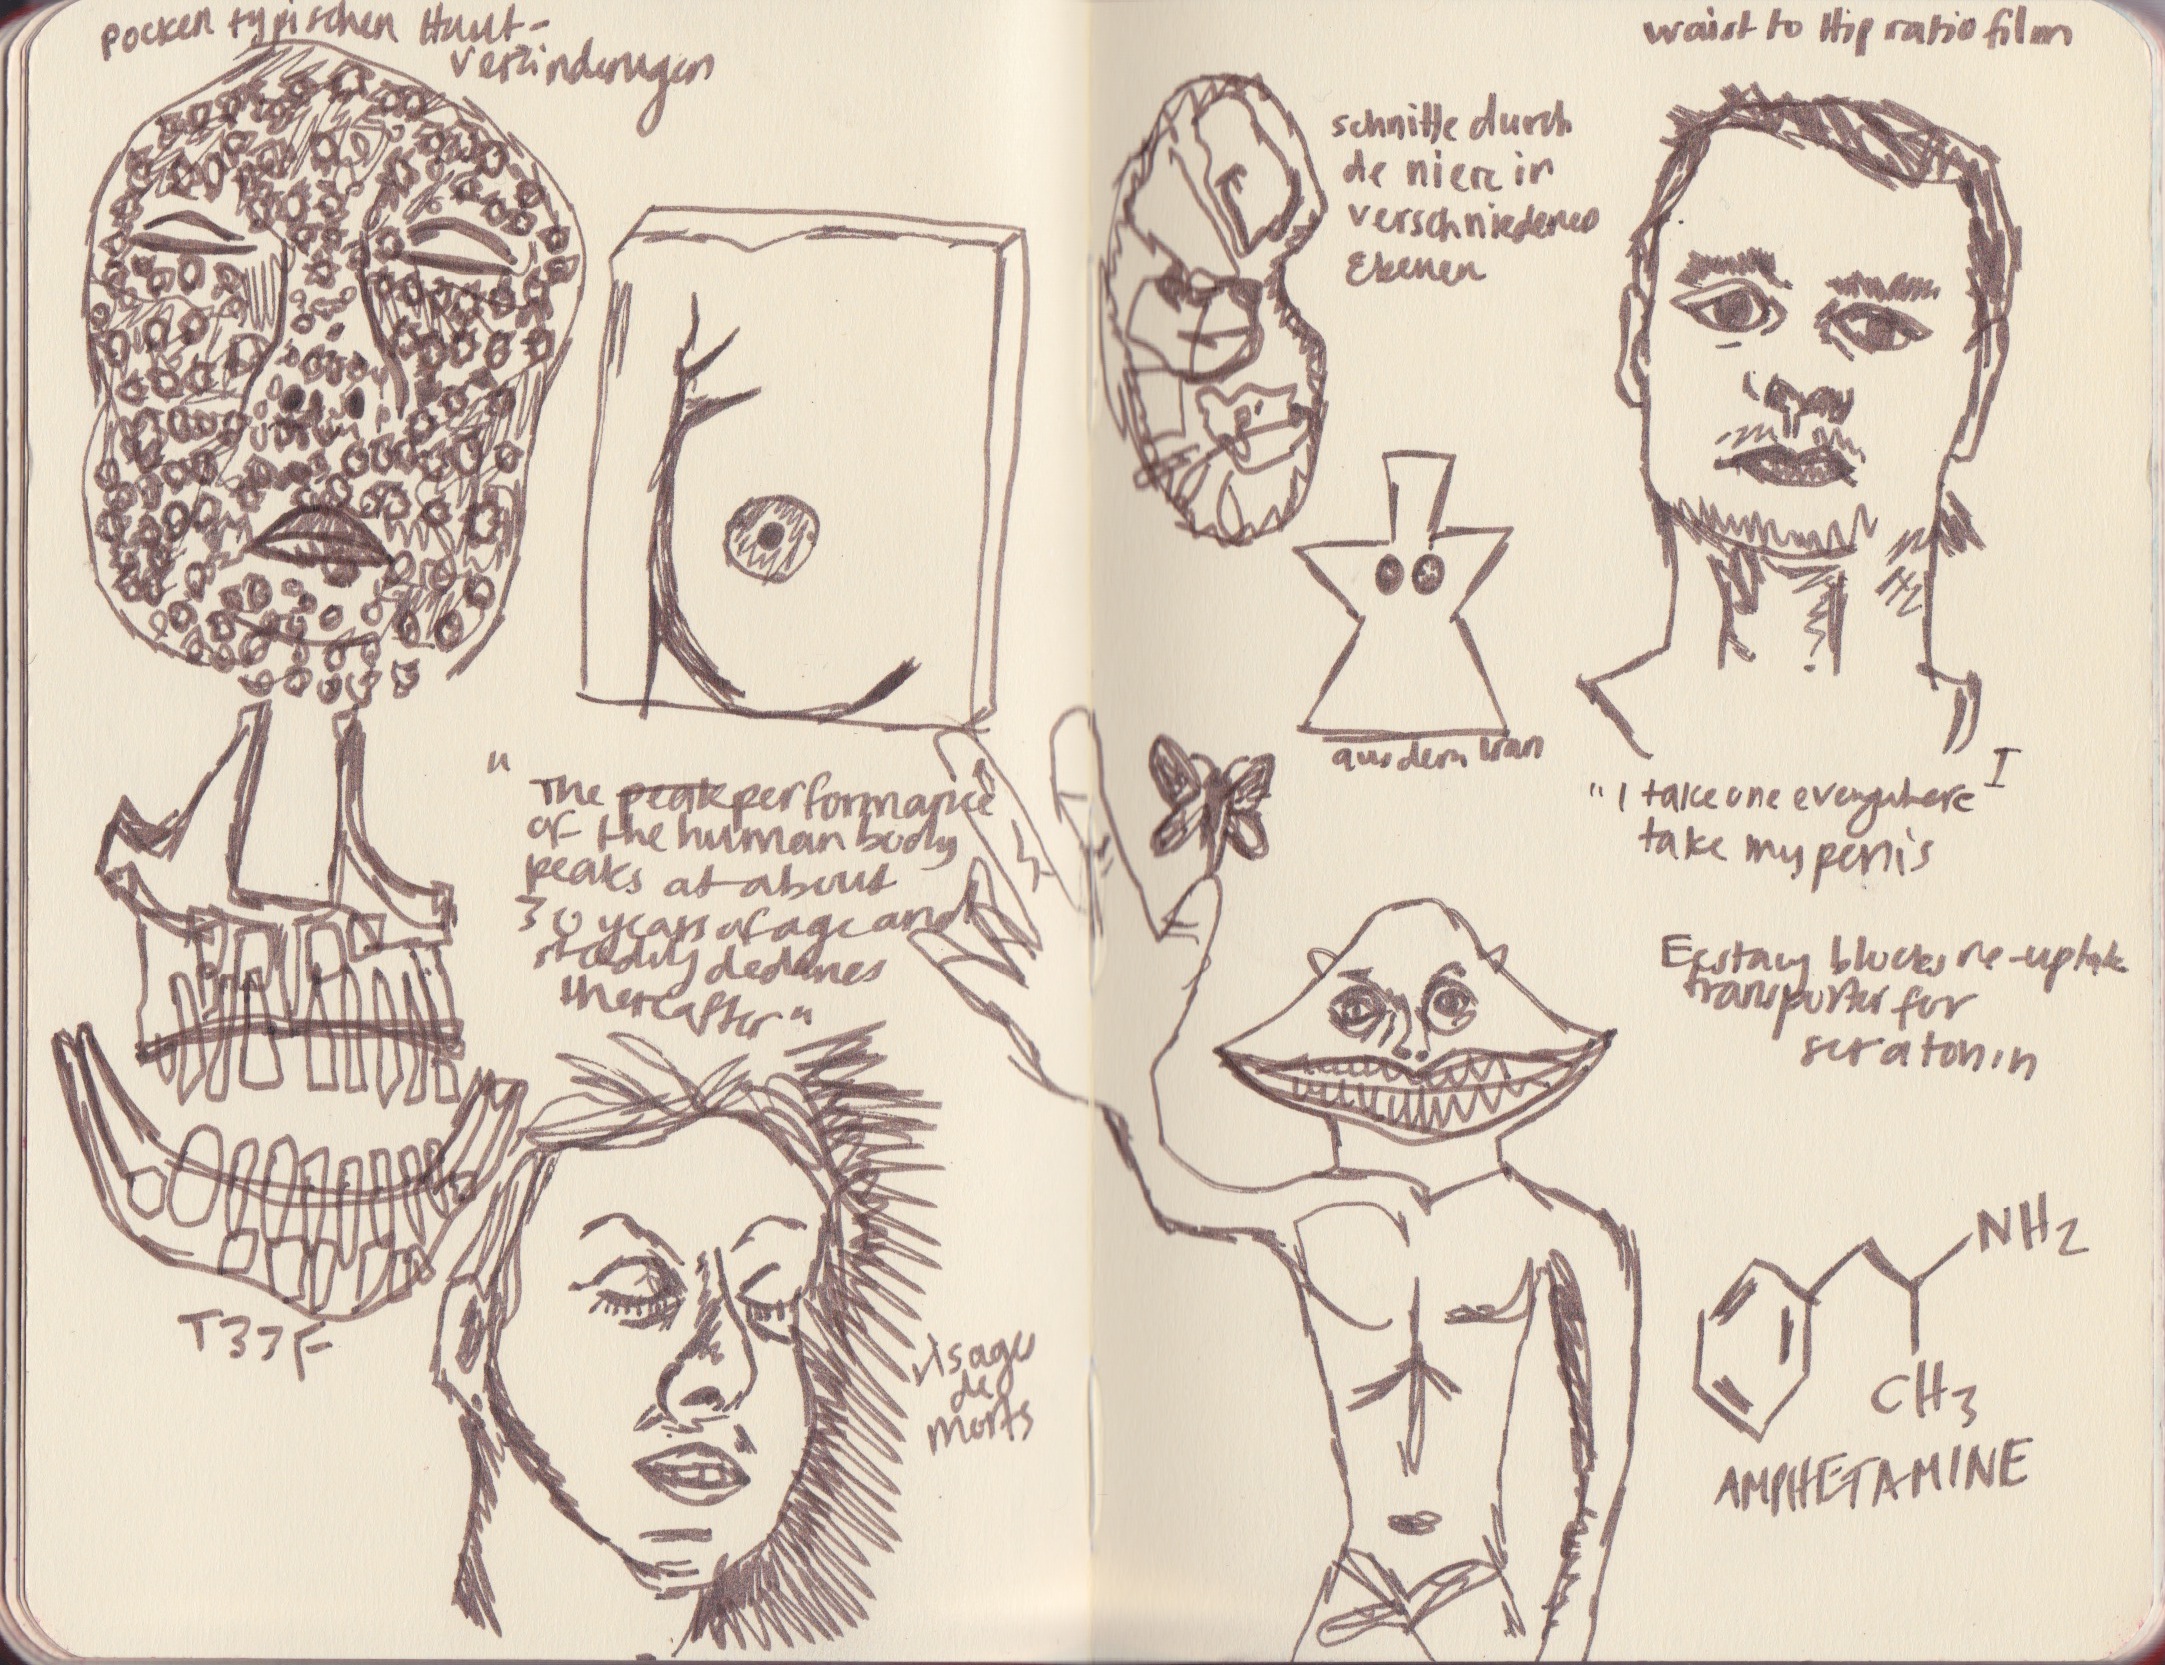 pocken typischen Haut-
veränderungen
"The peak performance
of the human body
peaks at about
30 years of age and
steadily declines
thereafter"
T37F
visage
de
morts
waist to Hip ratio film
schnitte durch
de niere in
verschniedenes
Ebenen
aus dem Iran
I
"I take one everywhere
take my penis
Ecstacy blocks re-uptake
transporter for
seratonin
NH2
CH3
AMPHETAMINE